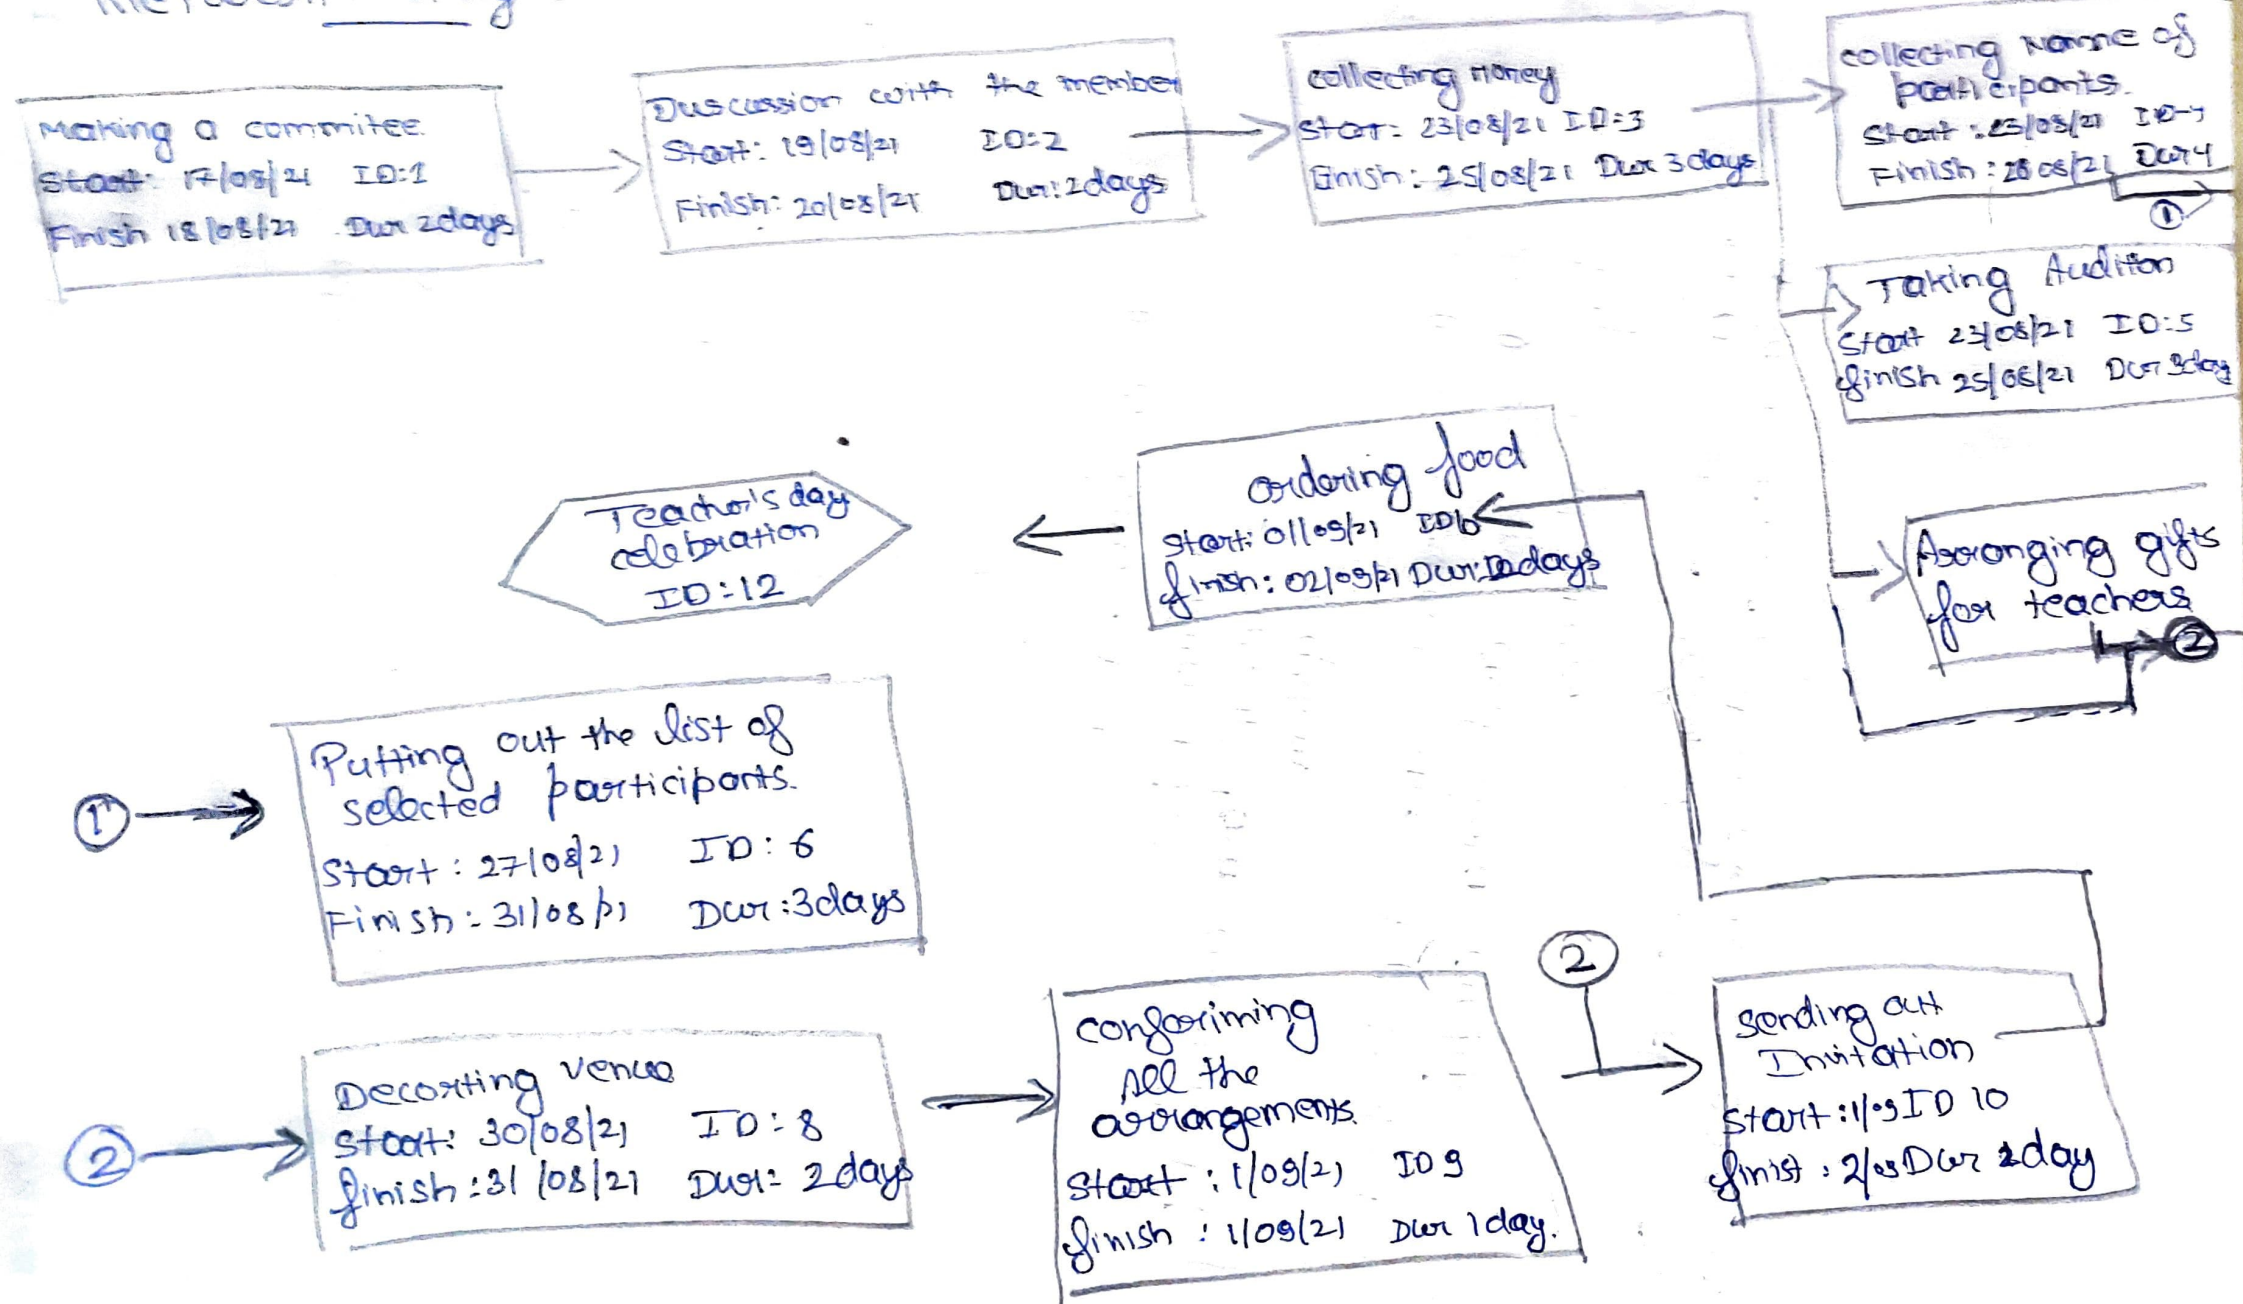 Making a commitee
Start: 17/08/21 ID:1
Finish 18/08/21 Dur 2days
Duscussion with the member
Start: 19/08/21 ID:2
Finish: 20/08/21 Dur: 2days
collecting Money
Start: 23/08/21 ID:3
Finish: 25/08/21 Dur 3days
collecting Name of
participants.
Start: 23/08/21
Finish: 26/08/21 Dur 4
1
Taking Audition
Start 23/08/21 ID:5
finish 25/08/21 Dur 3day
ordering food
Start: 01/09/21
finish: 02/09/21 Dur: 2days
Teacher's day
celebration
ID:12
Arranging gifts
for teachers
2
1
Putting out the list of
selected participants.
Start: 27/08/21 ID: 6
Finish: 31/08/21 Dur: 3days
2
Decorting venue
Start: 30/08/21 ID: 8
finish: 31/08/21 Dur: 2days
conforiming
All the
arrangements.
Start: 1/09/21 ID 9
finish: 1/09/21 Dur 1day.
2
Sending out
Invitation
Start: 1/09 ID 10
finist: 2/09 Dur 2day